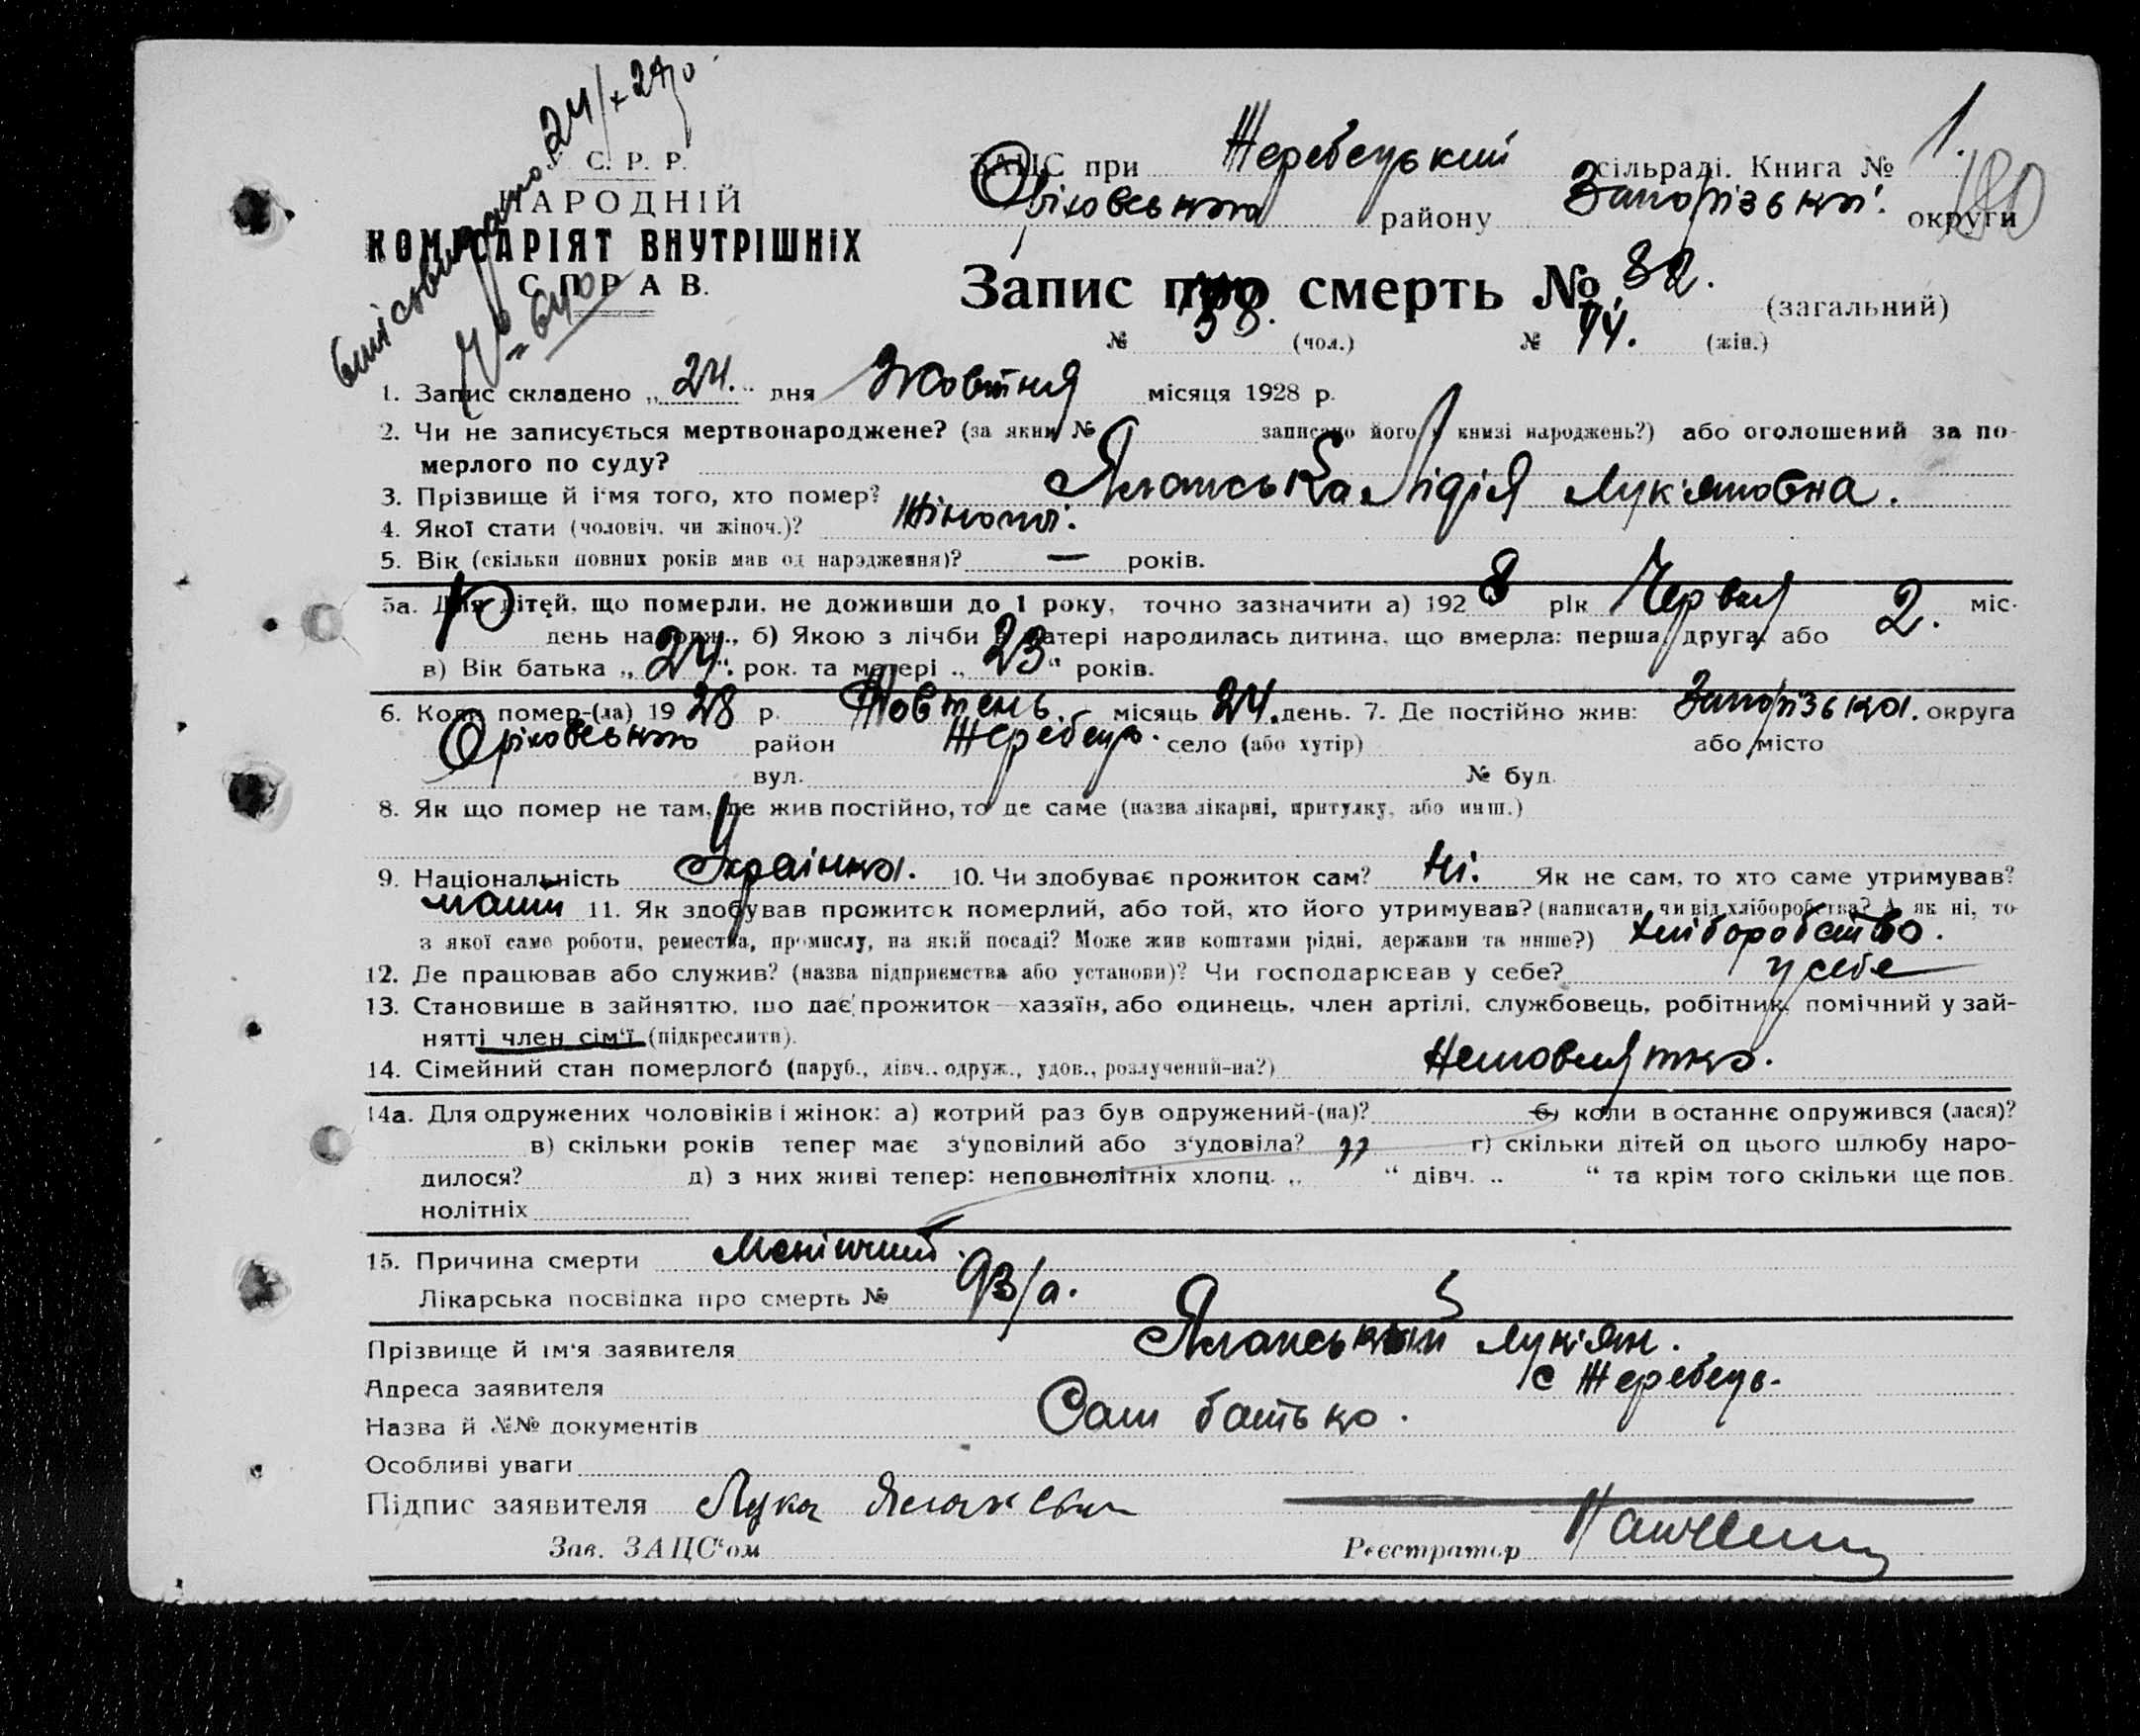 С. Р. Р.
НАРОДНІЙ
КОМІСАРІЯТ ВНУТРІШНІХ
СПРАВ.
ЗАЦС при Жеребецький сільраді. Книга № 1.
Оріховського району Запорізької округи
180
Запис про смерть № 82. (загальний)
№ 38. (чол.) № 44. (жін.)
1. Запис складено „24.“ дня Жовтня місяця 1928 р.
2. Чи не записується мертвонароджене? (за яким № записано його у книзі народжень?) або оголошений за по-
мерлого по суду?
3. Прізвище й ім'я того, хто помер? Яланська Лідія Лук'яновна.
4. Якої статі (чоловіч. чи жіноч.)? Жіночої.
5. Вік (скільки повних років мав од народження)? — років.
5а. Для дітей, що померли, не доживши до 1 року, точно зазначити а) 1928 рік Червня міс-
10 день народж., б) Якою з лічби в матері народилась дитина, що вмерла: перша, друга, або 2.
в) Вік батька „24“ рок. та матері „23“ років.
6. Коли помер-(ла) 1928 р. Жовтень. місяць 24. день. 7. Де постійно жив: Запорізька. округа
Оріховського район Жеребець. село (або хутір) або місто
вул. № буд.
8. Як що помер не там, де жив постійно, то де саме (назва лікарні, притулку, або инш.)
9. Національність Українка. 10. Чи здобуває прожиток сам? Ні. Як не сам, то хто саме утримував?
11. Як здобував прожиток померлий, або той, хто його утримував? (написати, чи від хліборобства? А як ні, то
з якої саме роботи, ремества, промислу, на якій посаді? Може жив коштами рідні, держави та инше?) Хліборобство.
12. Де працював або служив? (назва підприємства або установи)? Чи господарював у себе? у себе
13. Становище в зайняттю, що дає прожиток—хазяїн, або одинець, член артілі, службовець, робітник, помічний у зай-
нятті член сім'ї (підкреслити).
14. Сімейний стан померлого (паруб., дівч., одруж., удов., розлучений-на?) Немовлятко.
14а. Для одружених чоловіків і жінок: а) котрий раз був одружений-(на)? б) коли востаннє одружився (лася)?
в) скільки років тепер має з'удовілий або з'удовіла? г) скільки дітей од цього шлюбу наро-
дилося? д) з них живі тепер: неповнолітніх хлопц. „ “ дівч. „ “ та крім того скільки ще пов.
нолітніх
15. Причина смерти Менінгит.
Лікарська посвідка про смерть № 93/а.
Прізвище й ім'я заявителя Яланський Лук'ян.
Адреса заявителя с Жеребець.
Назва й №№ документів Сам батько.
Особливі уваги
Підпис заявителя Лука
Зав. ЗАЦС'ом Реєстратор